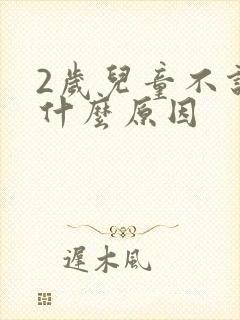 2歲兒童不
什麼原因
遲木風